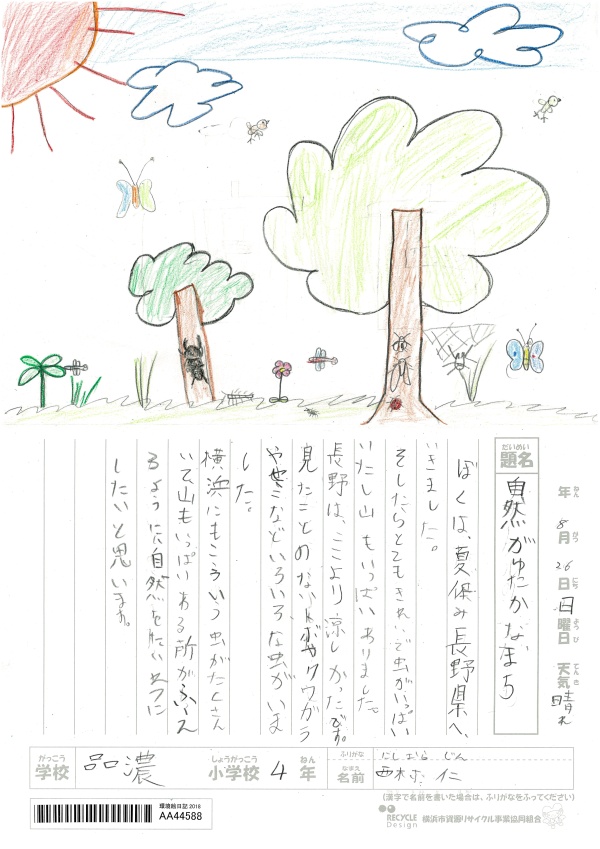 年 8月 26日 日曜日 天気 晴れ
ねん がつ にち ようび てんき
だいめい
題名 自然がゆたかなまち
ぼくは、夏休み長野県へ、
いきました。
そしたらとてもきれいで虫がいっぱい
いたし山もいっぱいありました。
長野は、ここより涼しかったです。
見たことのない クワガタ
やせみなどいろいろな虫がいま
した。
横浜にもこういう虫がたくさん
いて山もいっぱいある所がふえ
るように自然をたいせつに
したいと思います。
がっこう しょうがっこう ねん ふりがな にしむら じん
学校 品濃 小学校 4年 なまえ 名前 西村 仁
(漢字で名前を書いた場合は、ふりがなをふってください)
環境絵日記 2018
AA44588
RECYCLE Design 横浜市資源リサイクル事業協同組合